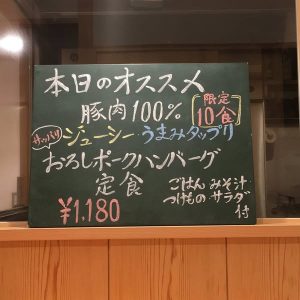 本日のオススメ
豚肉100%
限定
10食
サッパリ
ジューシー・うまみタップリ
おろしポークハンバーグ
定食
¥1,180
ごはん みそ汁
つけもの サラダ
付